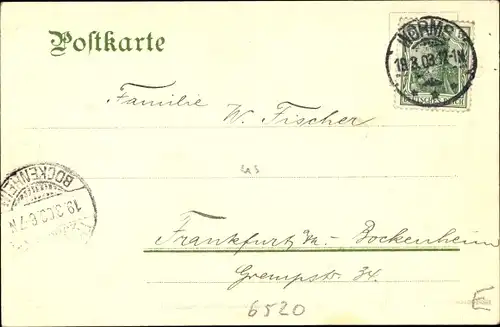 Postkarte
WORMS
19.3.03.12-1N
DEUTSCHES REICH
Familie
W. Fischer
Frankfurt a/M.- Bockenheim
Grempstr. 34.
BOCKENHEIM
19.3.03.6-7N
6520
E